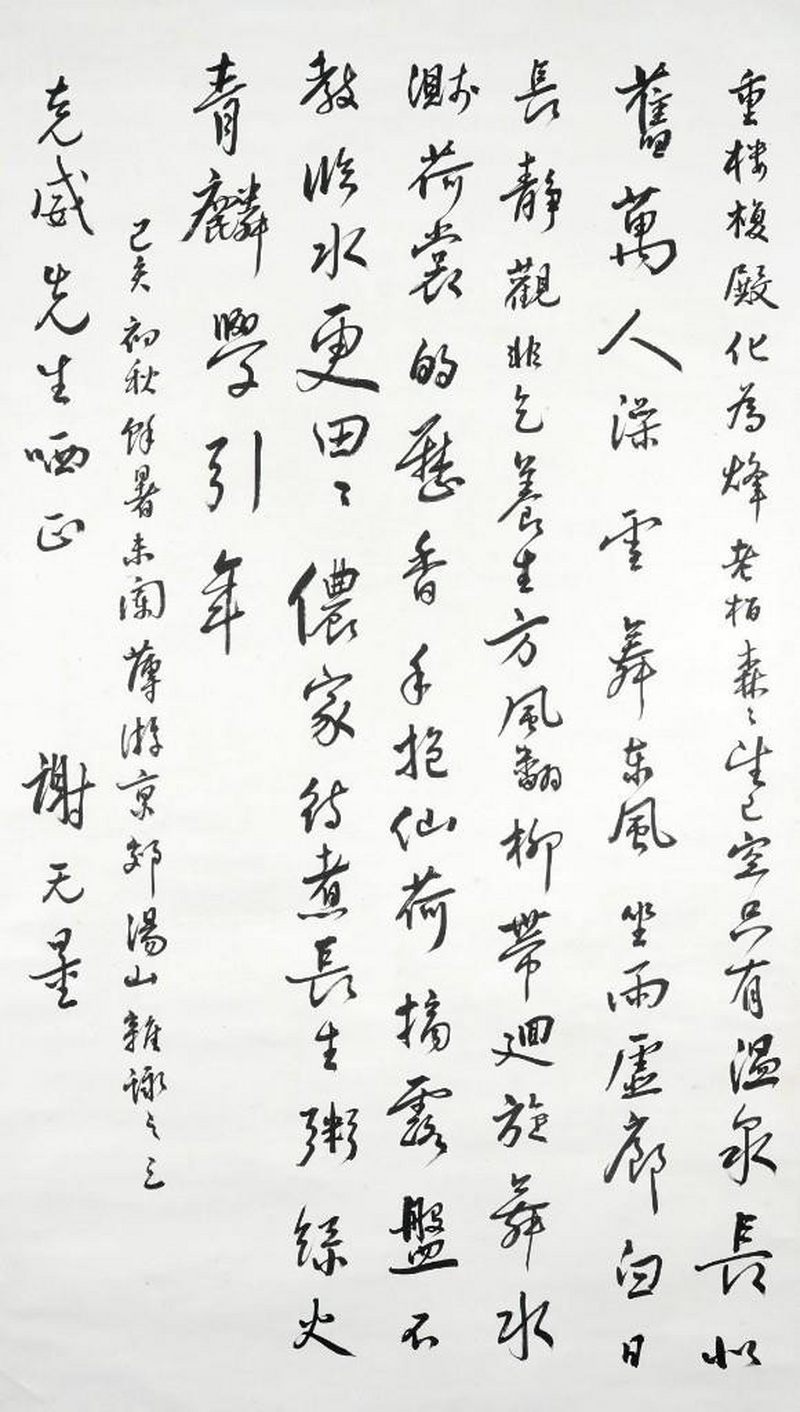 重樓複殿化為烽老柏森〻望已空只有溫泉長似
舊萬人澡雪舞東風坐雨虛廊白日
長靜觀非乞養生方風翻柳帶迴旋舞水
濺荷裳的歷香手把仙荷摘露盤不
教臨水更田〻儂家待煮長生粥緣火
青麟學引年
己亥初秋餘暑未闌薄游京郊湯山雜詠之三
克威先生哂正 謝无量